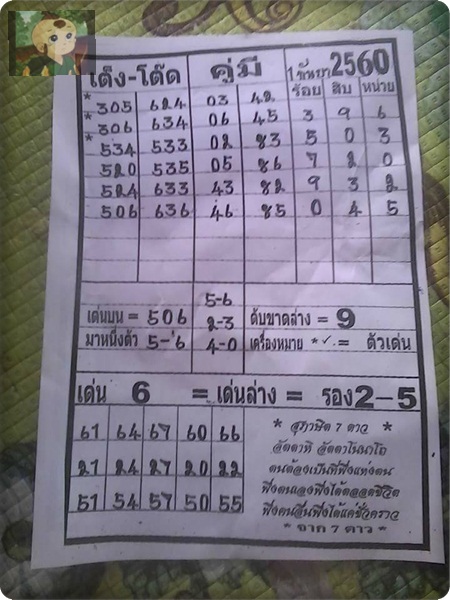 เต็ง-โต๊ด คู่มี 1 ธันวา 2560
ร้อย สิบ หน่วย
* 305 624 03 42 3 9 6
* 306 634 06 45 5 0 3
* 534 533 02 83 7 2 0
520 535 05 86 9 3 2
524 633 43 82 0 4 5
506 636 46 85
5-6
เด่นบน = 506 2-3 ดับขาดล่าง = 9
มาหนึ่งตัว 5-6 4-0 เครื่องหมาย *✓. = ตัวเด่น
เด่น 6 = เด่นล่าง = รอง 2-5
61 64 67 60 66
21 24 27 20 22
51 54 57 50 55
* สุภาษิต 7 ดาว *
อัตตาหิ อัตตาโนนาโถ
ตนต้องเป็นที่พึ่งแห่งตน
พึ่งตนเองพึ่งได้ตลอดชีวิต
พึ่งคนอื่นพึ่งได้แค่ชั่วคราว
* จาก 7 ดาว *